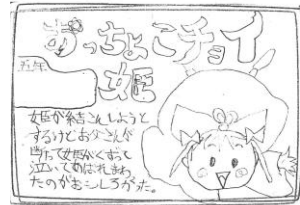 おっちょこチョイ
姫
五年
姫が結こんしようと
するけどお父さんが
断って姫がぐずって
泣いてあばれまわっ
たのがおもしろかった。